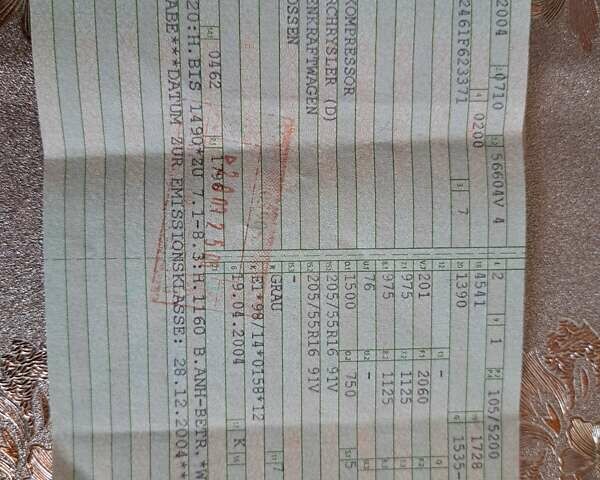 2004 0710 56604V 4 2 1 105/5200
0200 4541 1728
2461F623371 7 1390 1535-
-
201 2060
975 1125
975 1125
76 -
KOMPRESSOR 1500 750 5
CHRYSLER (D) 205/55R16 91V
ENKRAFTWAGEN 205/55R16 91V
OSSEN -
GRAU 7
E1*98/14*0158*12
29.04.2004 K
0462 1796
20:H.BIS 1490*ZU 7.1-8.3:H.1160 B.ANH.BETR.*W
ABE***DATUM ZUR EMISSIONSKLASSE: 28.12.2004**